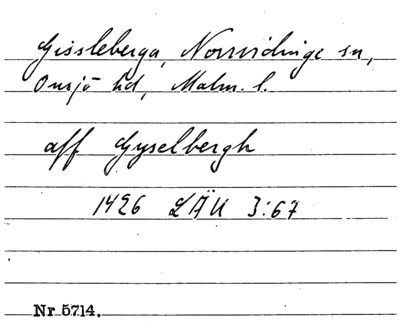 Gissleberga, Norrvidinge sn,
Onsjö hd, Malm. l.
aff Gyselbergh
1426 LÄU 3:67
Nr 5714.